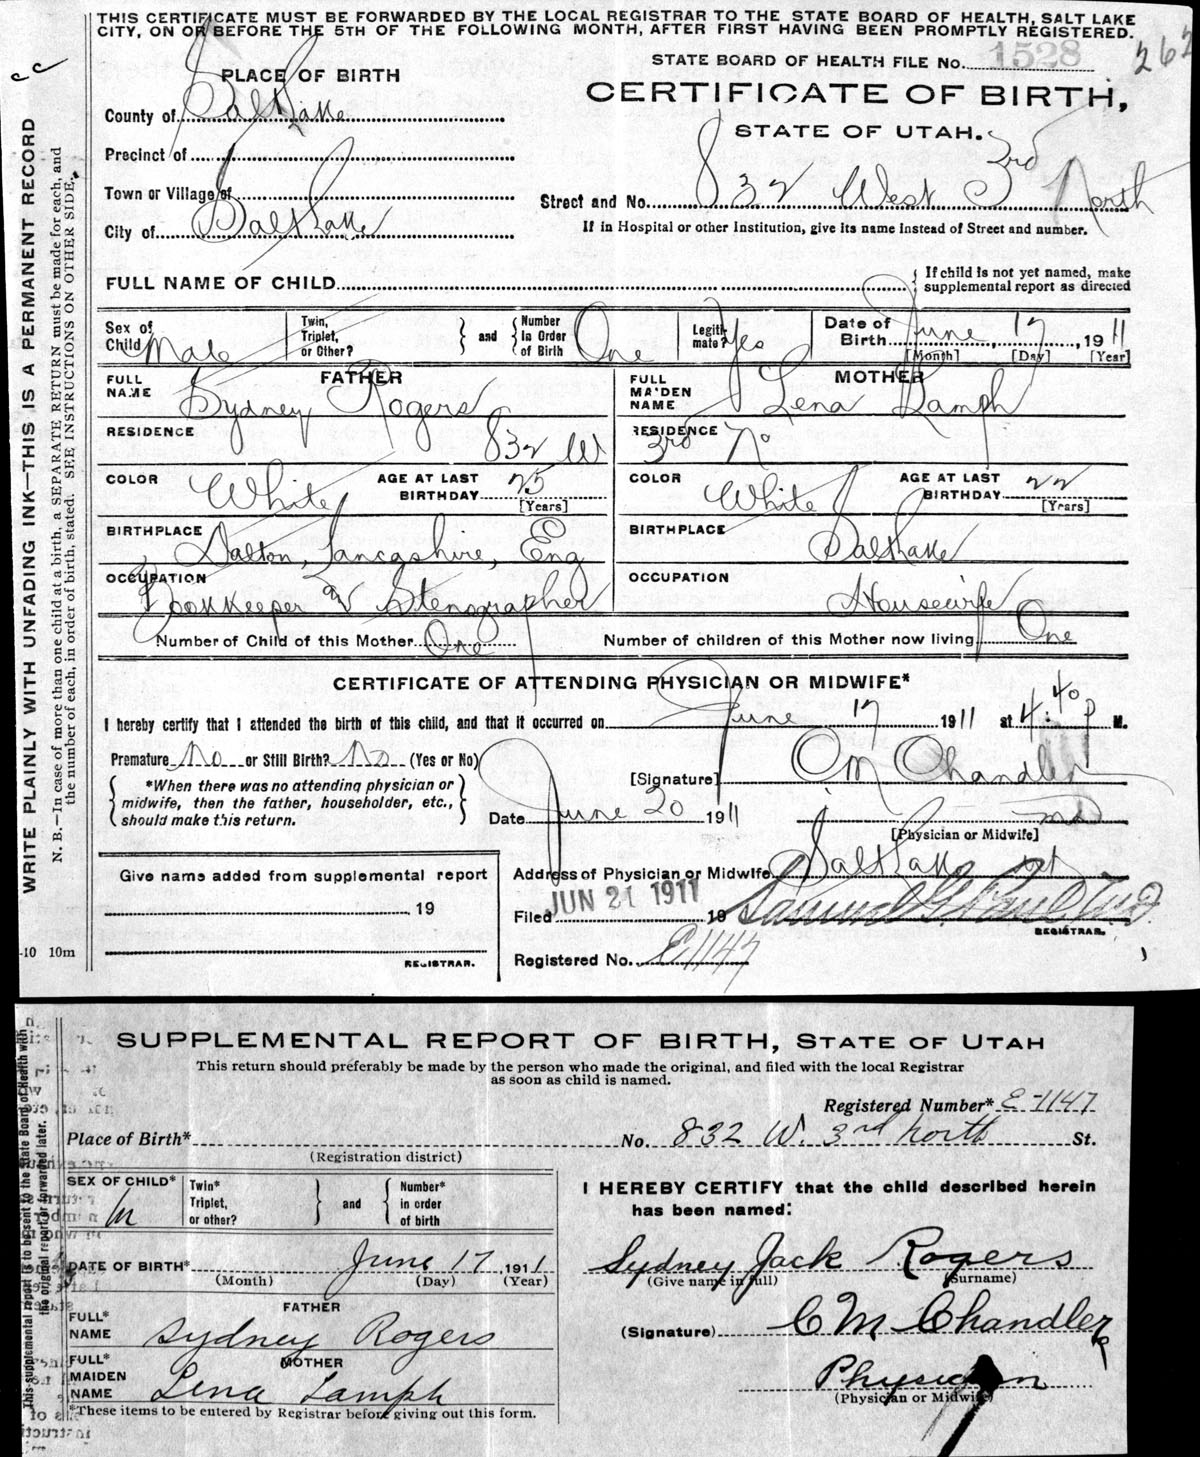 THIS CERTIFICATE MUST BE FORWARDED BY THE LOCAL REGISTRAR TO THE STATE BOARD OF HEALTH, SALT LAKE
CITY, ON OR BEFORE THE 5TH OF THE FOLLOWING MONTH, AFTER FIRST HAVING BEEN PROMPTLY REGISTERED.
262
STATE BOARD OF HEALTH FILE No. 1528
CERTIFICATE OF BIRTH,
STATE OF UTAH.
PLACE OF BIRTH
County of Salt Lake
Precinct of
Town or Village of
City of Salt Lake
Street and No. 832 West 3rd North
If in Hospital or other Institution, give its name instead of Street and number.
FULL NAME OF CHILD
If child is not yet named, make
supplemental report as directed
Sex of Child Male
Twin, Triplet, or Other?
and
Number In Order of Birth One
Legitimate? Yes
Date of Birth June 17, 1911
[Month] [Day] [Year]
FATHER
FULL NAME Sydney Rogers
MOTHER
FULL MAIDEN NAME Lena Lamph
RESIDENCE 832 W
RESIDENCE 3rd No
COLOR White
AGE AT LAST BIRTHDAY 25 [Years]
COLOR White
AGE AT LAST BIRTHDAY 22 [Years]
BIRTHPLACE Dalton, Lancashire, Eng
BIRTHPLACE Salt Lake
OCCUPATION Bookkeeper & Stenographer
OCCUPATION Housewife
Number of Child of this Mother One
Number of children of this Mother now living One
CERTIFICATE OF ATTENDING PHYSICIAN OR MIDWIFE*
I hereby certify that I attended the birth of this child, and that it occurred on June 17 1911 at 4:40 P M.
Premature No or Still Birth? No (Yes or No)
*When there was no attending physician or
midwife, then the father, householder, etc.,
should make this return.
[Signature] C M Chandler
Date June 20 1911
MD
[Physician or Midwife]
Address of Physician or Midwife Salt Lake
Filed JUN 21 1911 19
REGISTRAR.
Registered No. E1147
Give name added from supplemental report
, 19
REGISTRAR.
WRITE PLAINLY WITH UNFADING INK—THIS IS A PERMANENT RECORD
N. B.—In case of more than one child at a birth, a SEPARATE RETURN must be made for each, and
the number of each, in order of birth, stated. SEE INSTRUCTIONS ON OTHER SIDE.
-10 10m
SUPPLEMENTAL REPORT OF BIRTH, STATE OF UTAH
This return should preferably be made by the person who made the original, and filed with the local Registrar
as soon as child is named.
Registered Number* E-1147
Place of Birth*
No. 832 W. 3rd North St.
(Registration district)
SEX OF CHILD* M
Twin* Triplet, or other?
and
Number* in order of birth
DATE OF BIRTH* June 17, 1911
(Month) (Day) (Year)
FATHER
FULL* NAME Sydney Rogers
MOTHER
FULL* MAIDEN NAME Lena Lamph
*These items to be entered by Registrar before giving out this form.
I HEREBY CERTIFY that the child described herein
has been named:
Sydney Jack Rogers
(Give name in full) (Surname)
(Signature) C M Chandler
Physician
(Physician or Midwife)
This supplemental report is to be sent to the State Board of Health with
the original report or forwarded later.